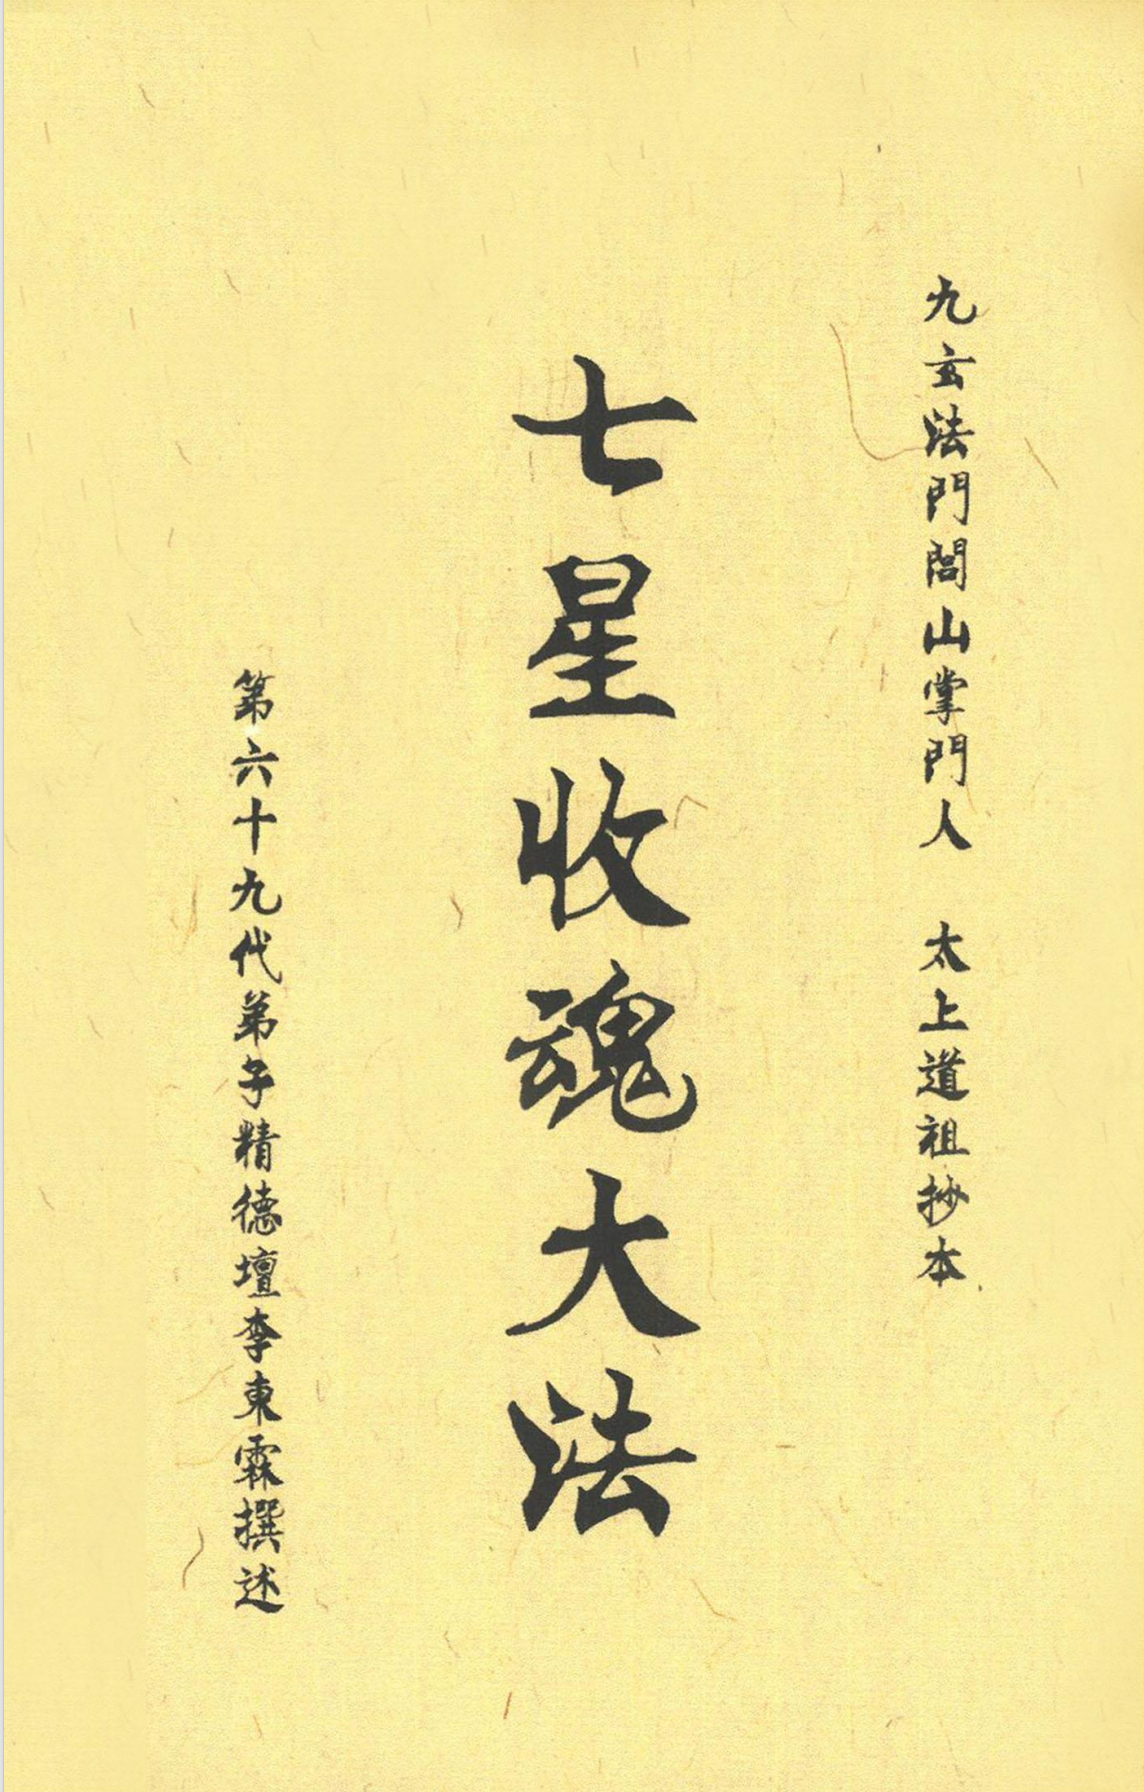 九玄法門閭山掌門人　太上道祖抄本
七星收魂大法
第六十九代弟子精德壇李東霖撰述